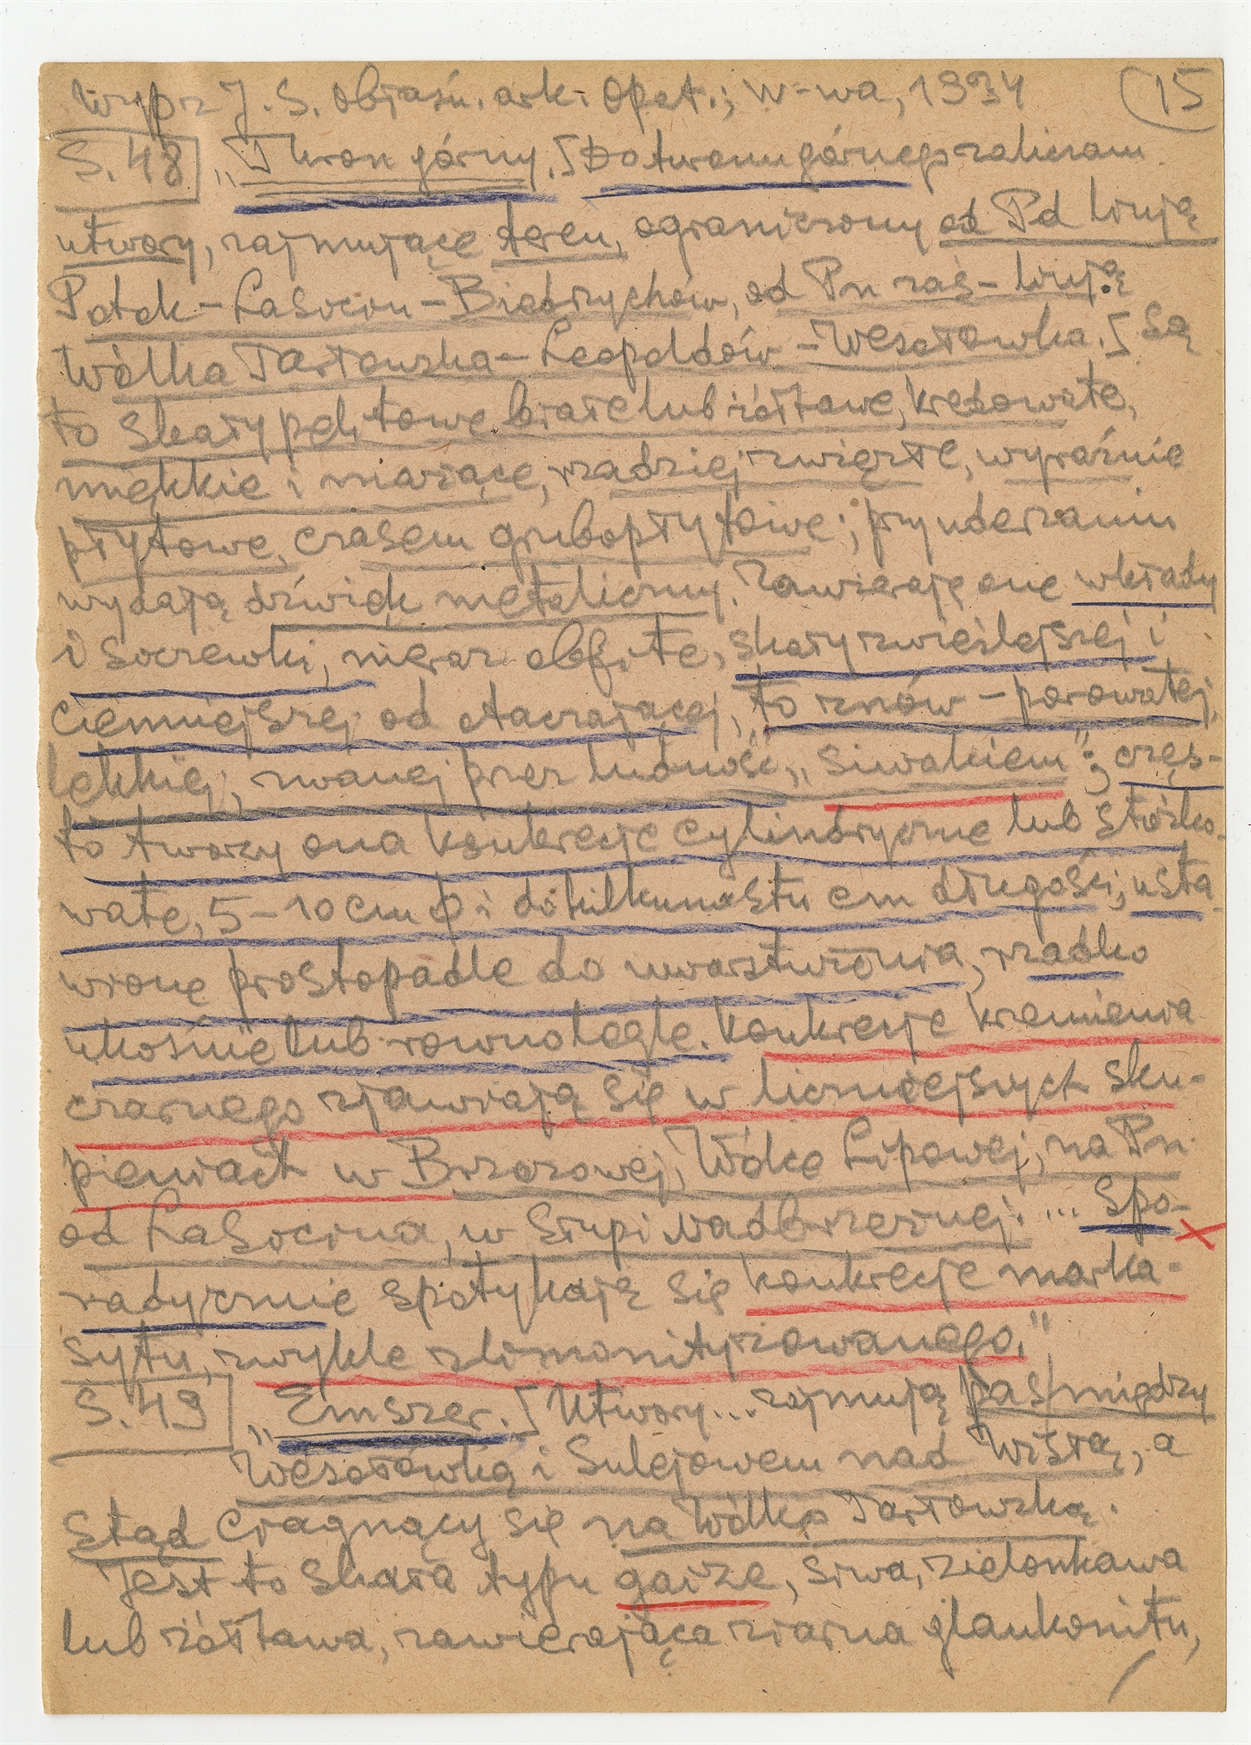 Wyp z J. S. Objaśn. ark. Opat.; W-wa, 1934 (15
S. 48] „Turon górny. [Do turonu górnego zaliczam
utwory, zajmujące teren, ograniczony od Pd linją
Potok – Lasocin – Biedrzychów, od Pn zaś – linją
Wólka Tarłowska – Leopoldów – Wesołówka. [Są
to skały pelitowe białe lub żółtawe, kredowate,
miękkie i marzące, rzadziej zwięzłe, wyraźnie
płytowe, czasem grubopłytowe; przy uderzaniu
wydają dźwięk metaliczny. Zawierają one wkłady
i soczewki, nieraz obfite, skały zwięźlejszej i
ciemniejszej od otaczającej, to znów – porowatej,
lekkiej, zwanej przez ludność „siwakiem"; częs-
to tworzy ona konkrecje cylindryczne lub stożko-
wate, 5–10 cm φ i do kilkunastu cm długości, usta-
wione prostopadle do uwarstwienia, rzadko
ukośnie lub równolegle. Konkrecje krzemienia
czarnego zjawiają się w liczniejszych sku-
pieniach w Brzozowej, Wólce Lipowej, na Pn
od Lasocina, w Słupi Nadbrzeżnej. ... Spo-
radycznie spotykają się konkrecje marka-
sytu, zwykle zlimonityzowanego."
S. 49] „Emszer. [Utwory... zajmują pas między
Wesołówką i Sulejowem nad Wisłą, a
stąd ciągnący się na Wólkę Tarłowską.
Jest to skała typu gaize, siwa, zielonkawa
lub żółtawa, zawierająca ziarna glaukonitu,